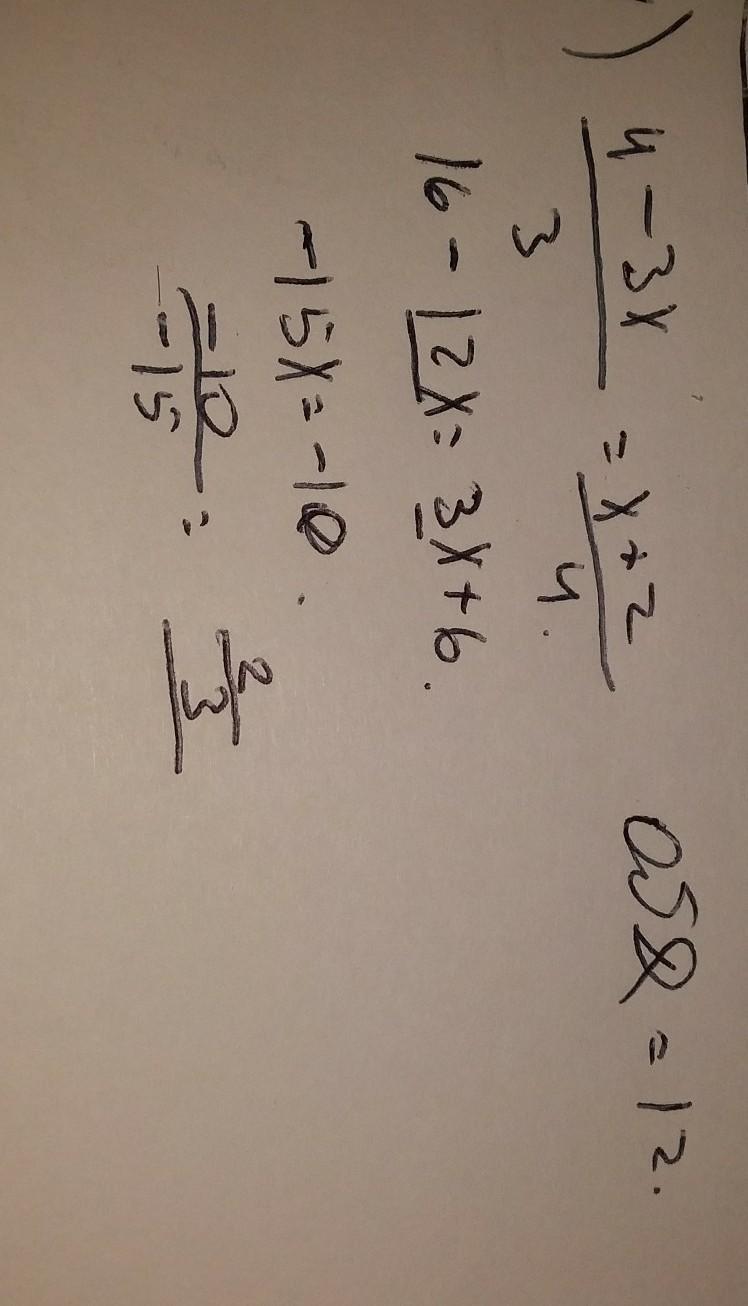 ) 4 - 3x / 3 = x + 2 / 4.
= 12.
16 - 12x = 3x + 6.
-15x = -10.
-10 / -15 = 2 / 3